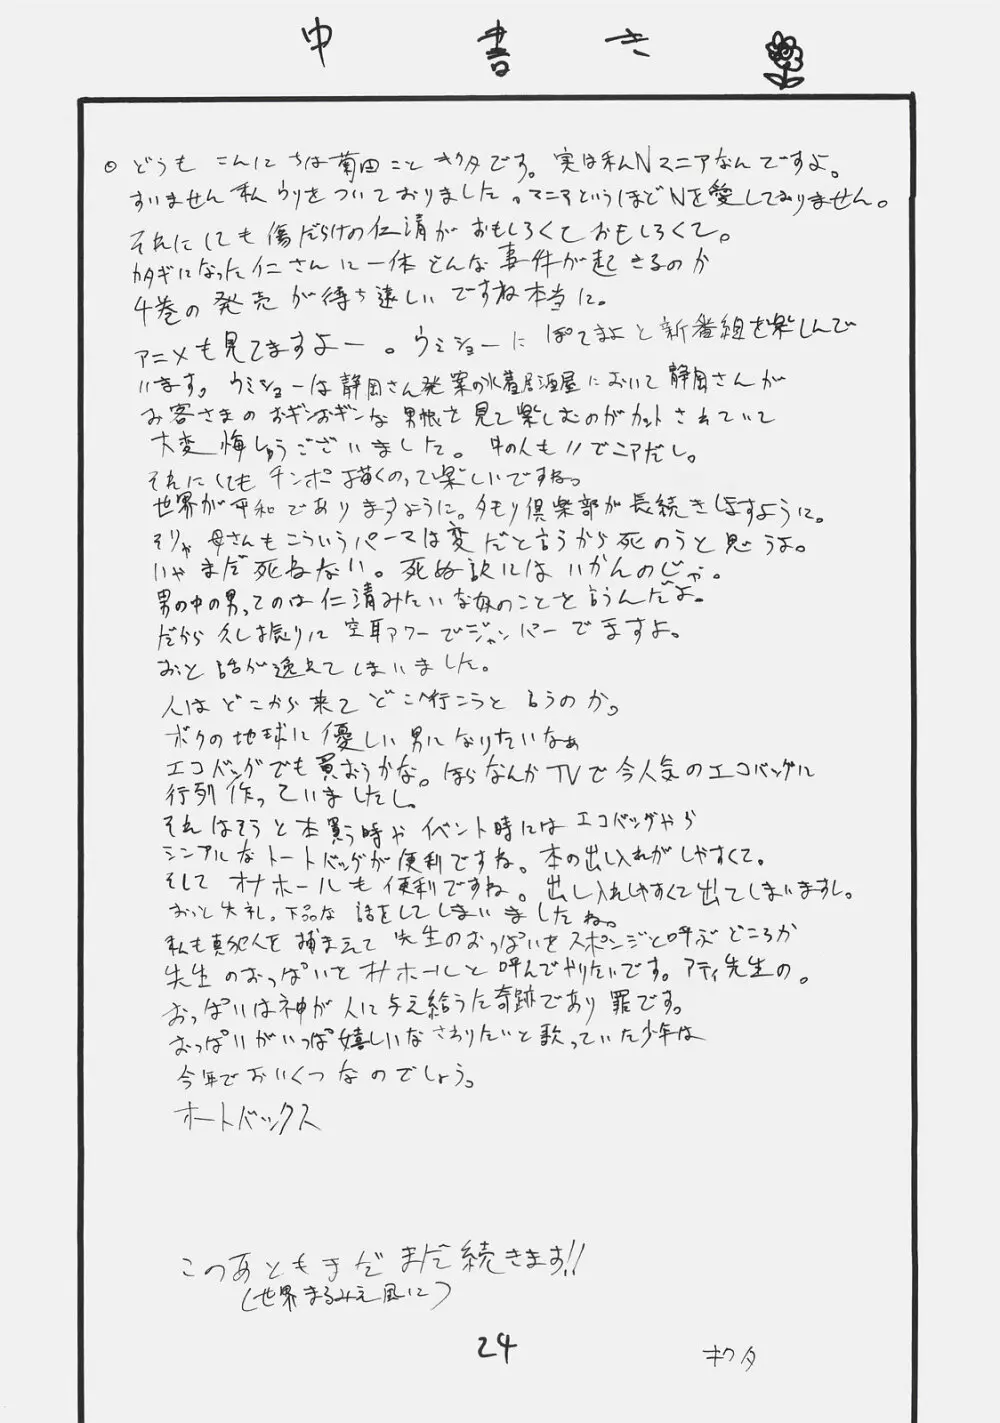 中書き
どうも こんにちは菊田ことキクタです。実は私Nマニアなんですよ。
すいません 私 ウソをついておりました。マニアというほどNを愛しておりません。
それにしても傷だらけの仁清がおもしろくておもしろくて。
カタギになった仁さんに一体どんな事件が起きるのか
4巻の発売が待ち遠しいですね本当に。
アニメも見てますよー。ウミショーに ぽてまよと新番組を楽しんで
います。ウミショーは静岡さん発案の水着居酒屋において静岡さんが
お客さまのおギンおギンな男根を見て楽しむのがカットされていて
大変悔しゅうございました。中の人も
それにしてもチンポ描くのって楽しいですね。
世界が平和でありますように。タモリ倶楽部が長続きしますように。
そりゃ 母さんもこういうパーマは変だと言うから死のうと思うよ。
いやまだ死ねない。死ぬ訳にはいかんのじゃ。
男の中の男ってのは仁清みたいな奴のことを言うんだよ。
だから久し振りに空耳アワーでジャンパーでますよ。
おっと話が逸れてしまいました。
人はどこから来てどこへ行こうと言うのか。
ボクの地球に優しい男になりたいなぁ
エコバッグでも買おうかな。ほらなんかTVで今人気のエコバッグに
行列作っていましたし。
それはそうと本買う時やイベント時にはエコバッグやら
シンプルなトートバッグが便利ですね。本の出し入れがしやすくて。
そしてオナホールも便利ですね。出し入れしやすくて出てしまいますし。
おっと失礼。下品な話をしてしまいましたね。
私も真犯人を捕まえて先生のおっぱいをスポンジと呼ぶどころか
先生のおっぱいをオナホールと呼んでやりたいです。アティ先生の。
おっぱいは神が人に与え給うた奇跡であり罪です。
おっぱいがいっぱ嬉しいなさわりたいと歌っていた少年は
今年でおいくつなのでしょう。
オートバックス
このあともまだまだ続きます!!
(世界まるみえ風に)
24
キクタ